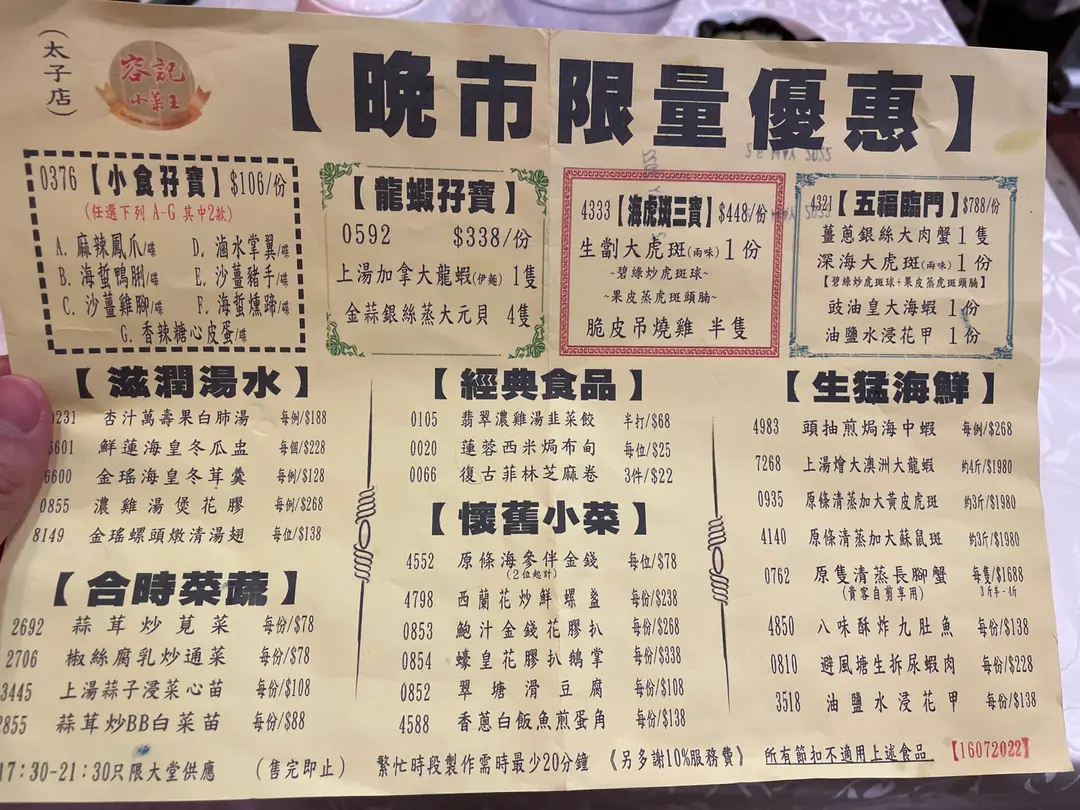 (太子店)
容記
小菜王
【晚市限量優惠】
0376【小食孖寶】$106/份
(任選下列 A-G 其中2款)
A. 麻辣鳳爪/碟
D. 滷水掌翼/碟
B. 海蜇鴨脷/碟
E. 沙薑豬手/碟
C. 沙薑雞腳/碟
F. 海蜇燻蹄/碟
G. 香辣糖心皮蛋/碟
【龍蝦孖寶】
0592 $338/份
上湯加拿大龍蝦(伊麵) 1隻
金蒜銀絲蒸大元貝 4隻
4333【海虎斑三寶】$448/份
生劏大虎斑(兩味) 1份
~碧綠炒虎斑球~
~果皮蒸虎斑頭腩~
脆皮吊燒雞 半隻
4321【五福臨門】$788/份
薑蔥銀絲大肉蟹 1隻
深海大虎斑(兩味) 1份
【碧綠炒虎斑球+果皮蒸虎斑頭腩】
豉油皇大海蝦 1份
油鹽水浸花甲 1份
【滋潤湯水】
0231 杏汁萬壽果白肺湯 每例/$188
6601 鮮蓮海皇冬瓜盅 每個/$228
6600 金瑤海皇冬茸羹 每例/$128
0855 濃雞湯煲花膠 每例/$268
8149 金瑤螺頭燉清湯翅 每位/$138
【合時菜蔬】
2692 蒜茸炒莧菜 每份/$78
2706 椒絲腐乳炒通菜 每份/$78
3445 上湯蒜子浸菜心苗 每份/$108
2855 蒜茸炒BB白菜苗 每份/$88
【經典食品】
0105 翡翠濃雞湯韭菜餃 半打/$68
0020 蓮蓉西米焗布甸 每位/$25
0066 復古菲林芝麻卷 3件/$22
【懷舊小菜】
4552 原條海參伴金錢 每位/$78
(2位起計)
4798 西蘭花炒鮮螺盞 每份/$238
0853 鮑汁金錢花膠扒 每份/$268
0854 蠔皇花膠扒鵝掌 每份/$338
0852 翠塘滑豆腐 每份/$108
4588 香蔥白飯魚煎蛋角 每份/$138
【生猛海鮮】
4983 頭抽煎焗海中蝦 每例/$268
7268 上湯燴大澳洲大龍蝦 約4斤/$1980
0935 原條清蒸加大黃皮虎斑 約3斤/$1980
4140 原條清蒸加大蘇鼠斑 約3斤/$1980
0762 原隻清蒸長腳蟹 每隻/$1688
(貴客自剪享用) 3斤半-4斤
4850 八味酥炸九肚魚 每份/$138
0810 避風塘生拆尿蝦肉 每份/$228
3518 油鹽水浸花甲 每份/$138
17:30-21:30只限大堂供應 (售完即止) 繁忙時段製作需時最少20分鐘 《另多謝10%服務費》 所有節扣不適用上述食品 【16072022】